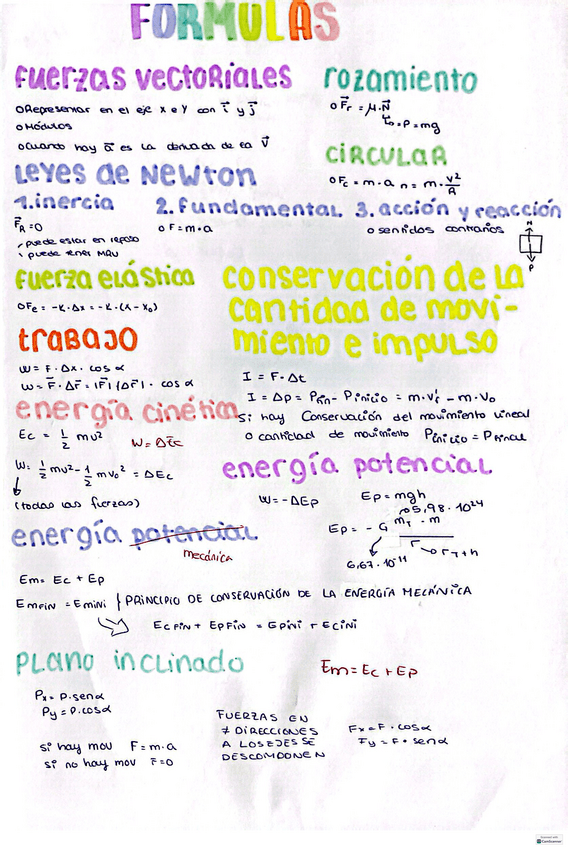 FORMULAS
fuerzas vectoriales
o Representar en el eje x e y con i⃗ y j⃗
o Módulos
o Cuando hay a⃗ es la derivada de la v⃗
rozamiento
o F⃗r = μ·N⃗
↳ = P = mg
CIRCULAR
o Fc = m·a n = m· v²/R
Leyes de Newton
1. inercia
F⃗R = 0
puede estar en reposo
puede tener MRU
2. fundamental
o F = m·a
3. acción y reacción
o sentidos contrarios
N
P
fuerza elástica
o Fe = -K·Δx = -K·(x - x₀)
trabajo
W = F·Δx·cos α
W = F⃗·Δr⃗ = |F⃗| |Δr⃗|·cos α
conservación de la
cantidad de movi-
miento e impulso
I = F·Δt
I = Δp = Pfin - Pinicio = m·vf - m·v₀
Si hay Conservación del movimiento lineal
o cantidad de movimiento Pinicio = Pfinal
energía cinética
Ec = 1/2 mv²
W = ΔEc
W = 1/2 mv² - 1/2 mv₀² = ΔEc
(todas las fuerzas)
energía potencial
W = -ΔEp
Ep = mgh
5,98·10²⁴
Ep = -G mT·m / r
r → rT + h
6,67·10⁻¹¹
energía potencial
mecánica
Em = Ec + Ep
Emfin = Emini } PRINCIPIO DE CONSERVACIÓN DE LA ENERGÍA MECÁNICA
Ecfin + Epfin = Epini + Ecini
Plano inclinado
Em = Ec + Ep
Px = P·senα
Py = P·cosα
si hay mov F = m·a
si no hay mov F = 0
FUERZAS EN
≠ DIRECCIONES
A LOS EJES SE
DESCOMPONEN
Fx = F·cosα
Fy = F·senα
CamScanner